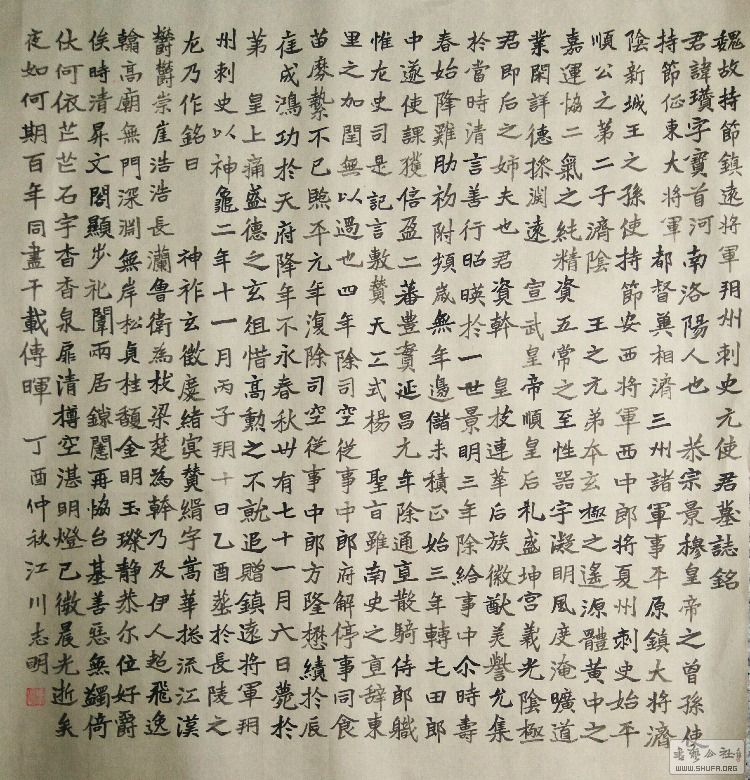 魏故持節鎮遠將軍朔州刺史元使君墓誌銘
君諱瓚字寶首河南洛陽人也 恭宗景穆皇帝之曾孫使
持節征東大將軍 都督冀相濟三州諸軍事平原鎮大將濟
陰新城王之孫使持節安西將軍西中郎將夏州刺史始平
順公之第二子濟陰 王之元弟夲玄極之遙源體黄中之
嘉運恊二氣之純精資五常之至性器宇凝明風度淹曠道
業閑詳德㮤渊遠 宣武皇帝順皇后礼盛坤宫義光陰極
君即后之姉夫也君資幹 皇枝連華后族徽猷美譽允集
於當時清言善行昭暎於一世景明三年除給事中尒時壽
春始降雞肋初附頻歲無年邊儲未積正始三年轉屯田郎
中遂使課獲倍盈二蕃豊實延昌九年除通直散騎侍郎職
惟左史司是記言敷贊天工式楊 聖旨雖南史之直辞東
里之加閏無以過也四年除司空從事中郎府解停事同食
苗縻縶不已熈平元年復除司空從事中郎方隆懋績於辰
庭成鴻功於天府降年不永春秋卅有七十一月六日薨於
第 皇上痛盛德之玄徂惜高勲之不就追贈鎮遠將軍朔
州刺史以神龜二年十一月丙子朔十日乙酉葬於長陵之
左乃作銘曰 神祚玄徴慶緒㝠贊縉字嵩華摠流江漢
欝欝崇崖浩浩長瀾魯衛為枝梁楚為幹乃及伊人超飛逸
翰高廟無門深渊無岸松貞桂馥金明玉璨静恭尔位好爵
俟時清昇文閣顯步礼闈兩居鏁闥再恊台基善惡無蠲倚
伏何依芒芒石宇杳杳泉扉清樽空湛明燈已微晨光逝矣
夜如何期百年同盡千載傳暉 丁酉仲秋江川志明
書藝公社
WWW.SHUFA.ORG